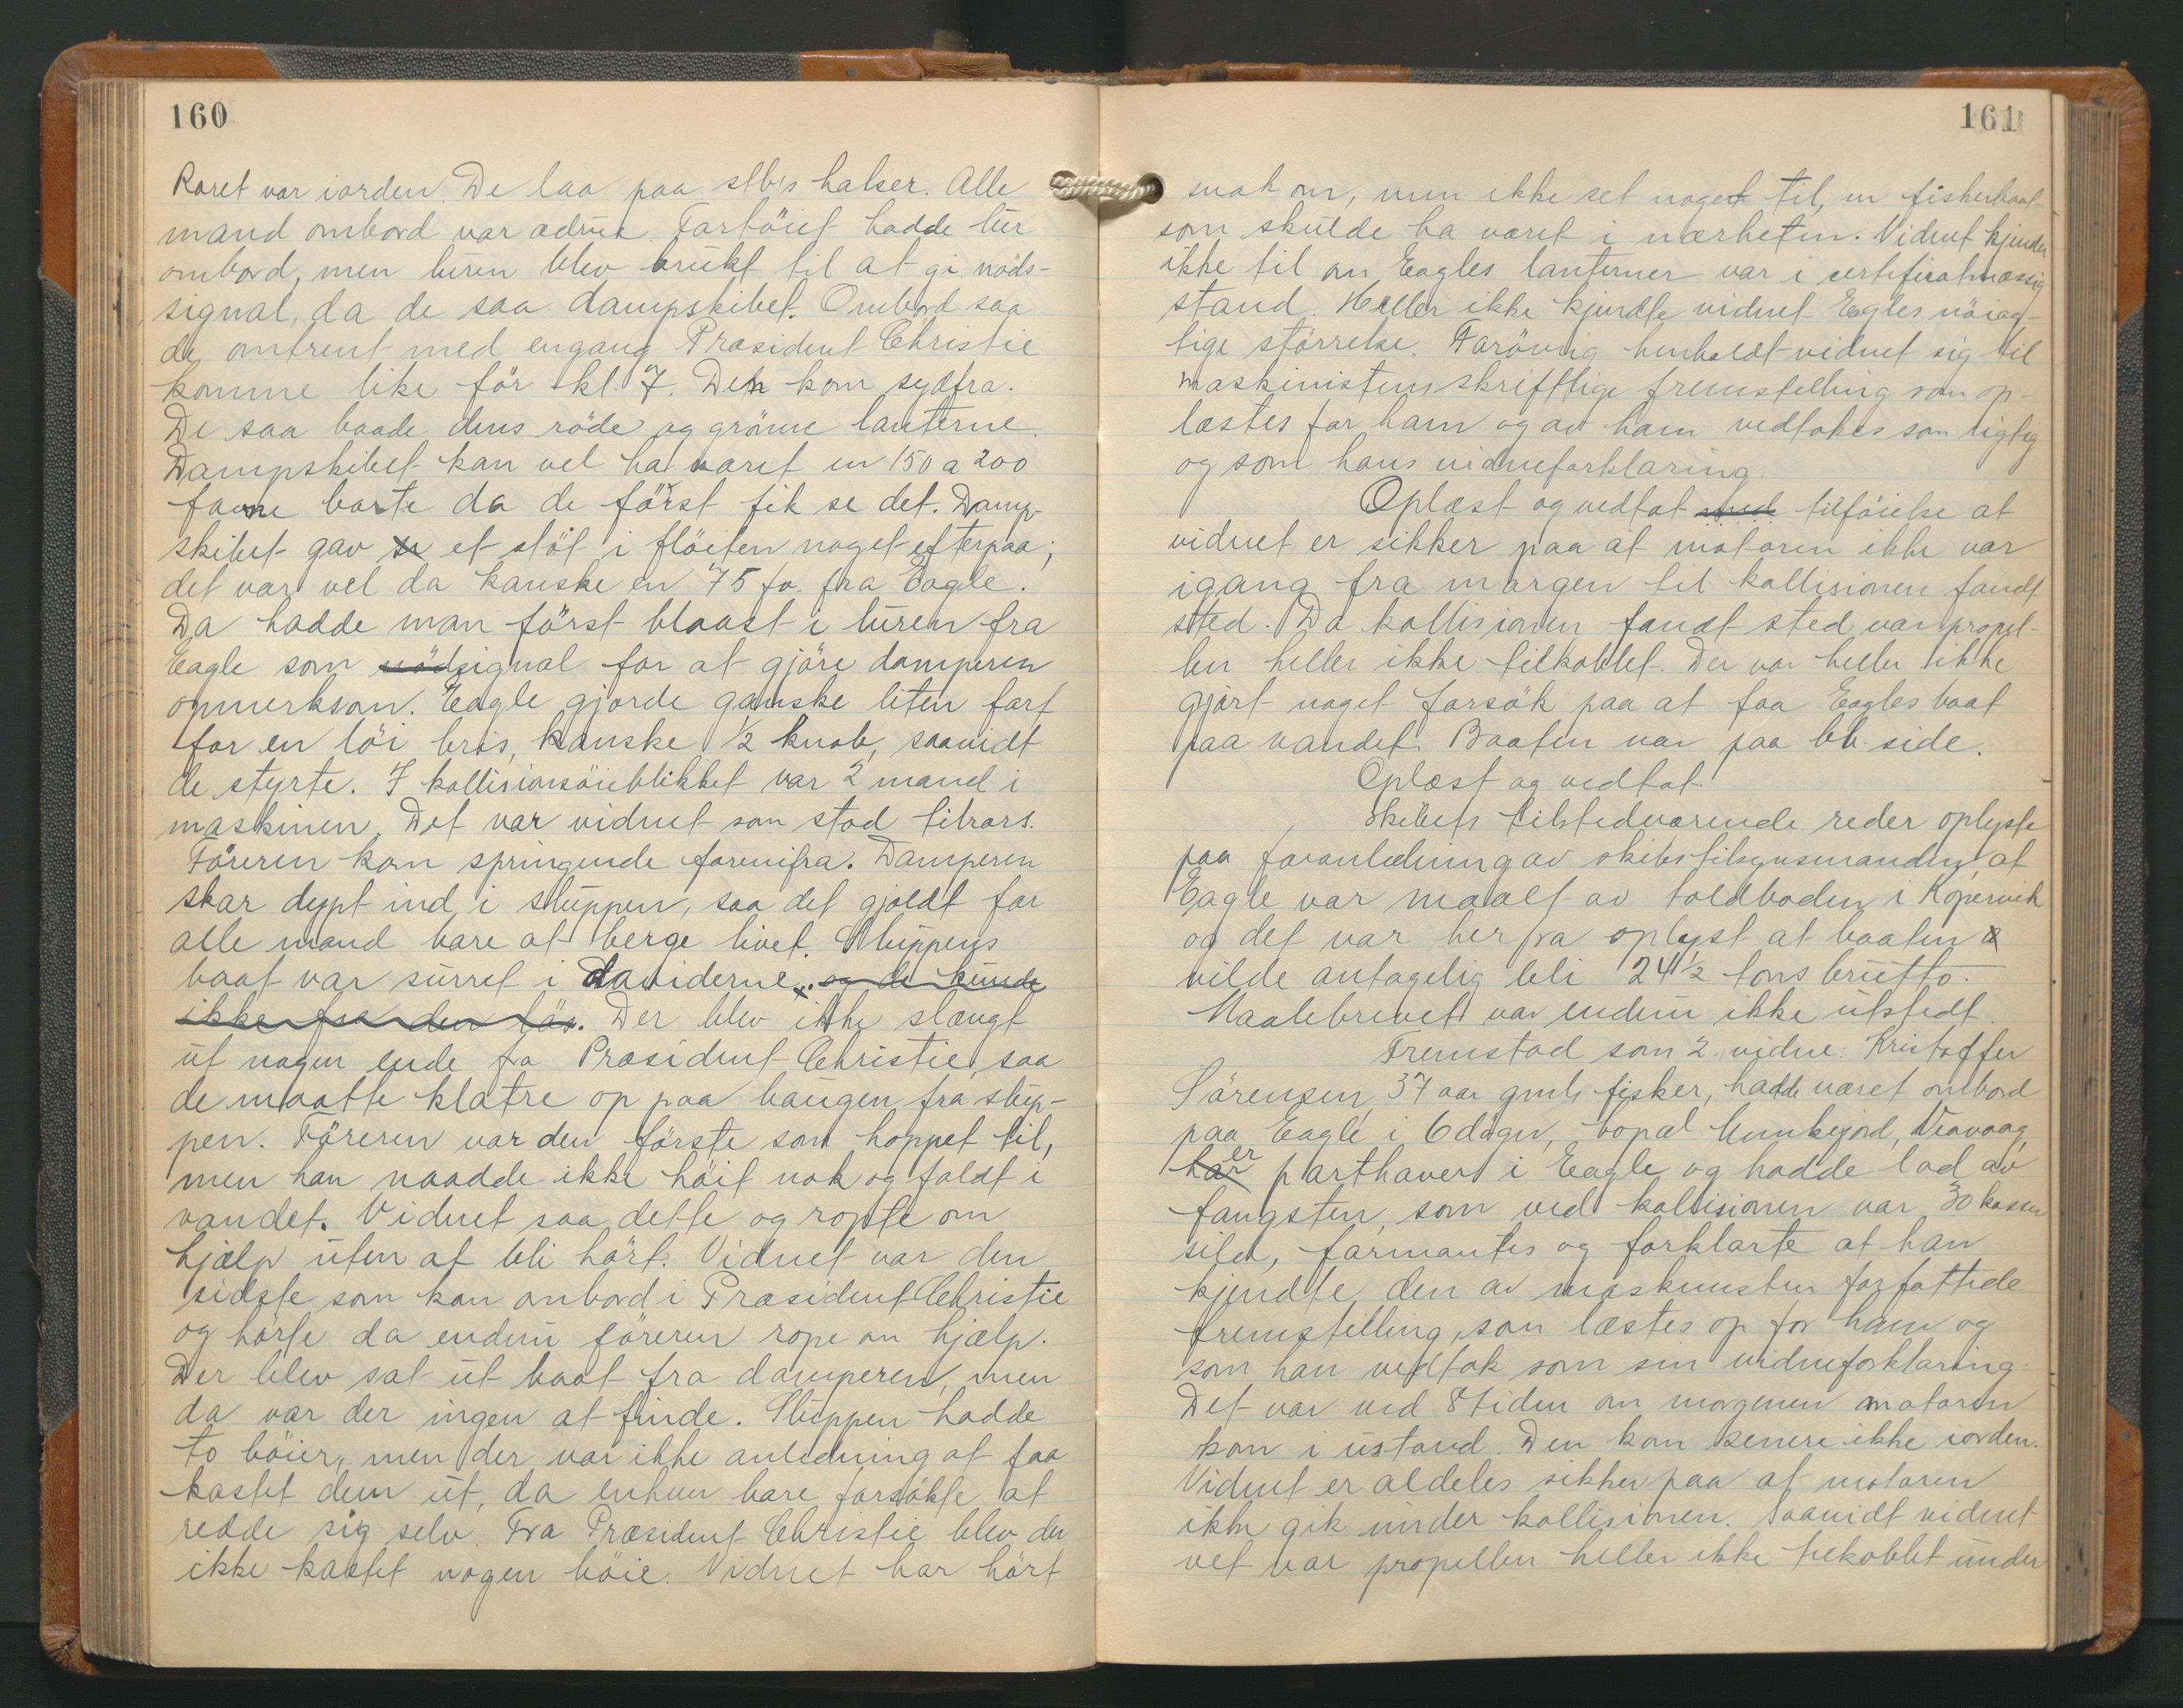 160
Roret var iorden. De laa paa stb's halser. Alle
mand ombord var ædrue. Fartöiet hadde lur
ombord, men luren blev brukt til at gi nöds-
signal, da de saa dampskibet. Ombord saa
de omtrent med engang Præsident Christie
komme like för kl. 7. Den kom sydfra.
De saa baade dens röde og grönne lanterne.
Dampskibet kan vel ha været en 150 a 200
favne borte da de först fik se det. Damp-
skibet gav et stöt i flöiten noget efterpaa;
det var vel da kanske en 75 fv. fra Eagle.
Da hadde man först blaast i luren fra
Eagle som nödsignal for at gjöre damperen
opmerksom. Eagle gjorde ganske liten fart
for en löi bris, kanske 1/2 knob, saavidt
de styrte. I kollisionsöieblikket var 2 mand i
maskinen. Det var vidnet som stod tilrors.
Föreren kom springende forenifra. Damperen
skar dypt ind i sluppen, saa det gjaldt for
alle mand bare at berge livet. Sluppens
baat var surret i daviderne, og de kunde
ikke faa den lös. Der blev ikke slængt
ut nogen ende fra Præsident Christie, saa
de maatte klatre op paa baugen fra slup-
pen. Föreren var den förste som hoppet til,
men han naadde ikke höit nok og faldt i
vandet. Vidnet saa dette og ropte om
hjælp uten at bli hört. Vidnet var den
sidste som kom ombord i Præsident Christie
og hörte da endnu föreren rope om hjælp.
Der blev sat ut baat fra damperen, men
da var der ingen at finde. Sluppen hadde
to böier, men der var ikke anledning at faa
kastet dem ut, da enhver bare forsökte at
redde sig selv. Fra Præsident Christie blev der
ikke kastet nogen böie. Vidnet har hört
161
snak om, men ikke set noget til, en fiskerbaat
som skulde ha været i nærheten. Vidnet kjender
ikke til om Eagles lanterner var i certificatmæssig
stand. Heller ikke kjendte vidnet Eagles nöiag-
tige störrelse. Forövrig henholdt vidnet sig til
maskinistens skriftlige fremstelling som op-
læstes for ham og av ham vedtokes som rigtig
og som hans vidneforklaring.
Oplæst og vedtat med tilföielse at
vidnet er sikker paa at motoren ikke var
igang fra morgen til kollisionen fandt
sted. Da kollisionen fandt sted var propel-
len heller ikke tilkoblet. Der var heller ikke
gjort noget forsök paa at faa Eagles baat
paa vandet. Baaten var paa bb. side.
Oplæst og vedtat.
Skibets tilstedværende reder oplyste
paa foranledning av skibstilsynsmanden, at
Eagle var maalt av toldboden i Kopervik
og det var herfra oplyst at baaten
vilde antagelig bli 24 1/2 tons brutto.
Maalebrevet var endnu ikke utstedt.
Fremstod som 2. vidne: Kristoffer
Sörensen, 37 aar gml, fisker, hadde været ombord
paa Eagle i 6 dager, bopæl Munkejord, Veavaag,
har er parthaver i Eagle og hadde lod av
fangsten, som ved kollisionen var 30 kasser
sild, formantes og forklarte at han
kjendte den av maskinisten forfattede
fremstilling, som læstes op for ham og
som han vedtok som sin vidneforklaring.
Det var ved 8 tiden om morgenen motoren
kom i ustand. Den kom senere ikke iorden.
Vidnet er aldeles sikker paa at motoren
ikke gik under kollisionen. Saavidt vidnet
vet var propellen heller ikke tilkoblet under